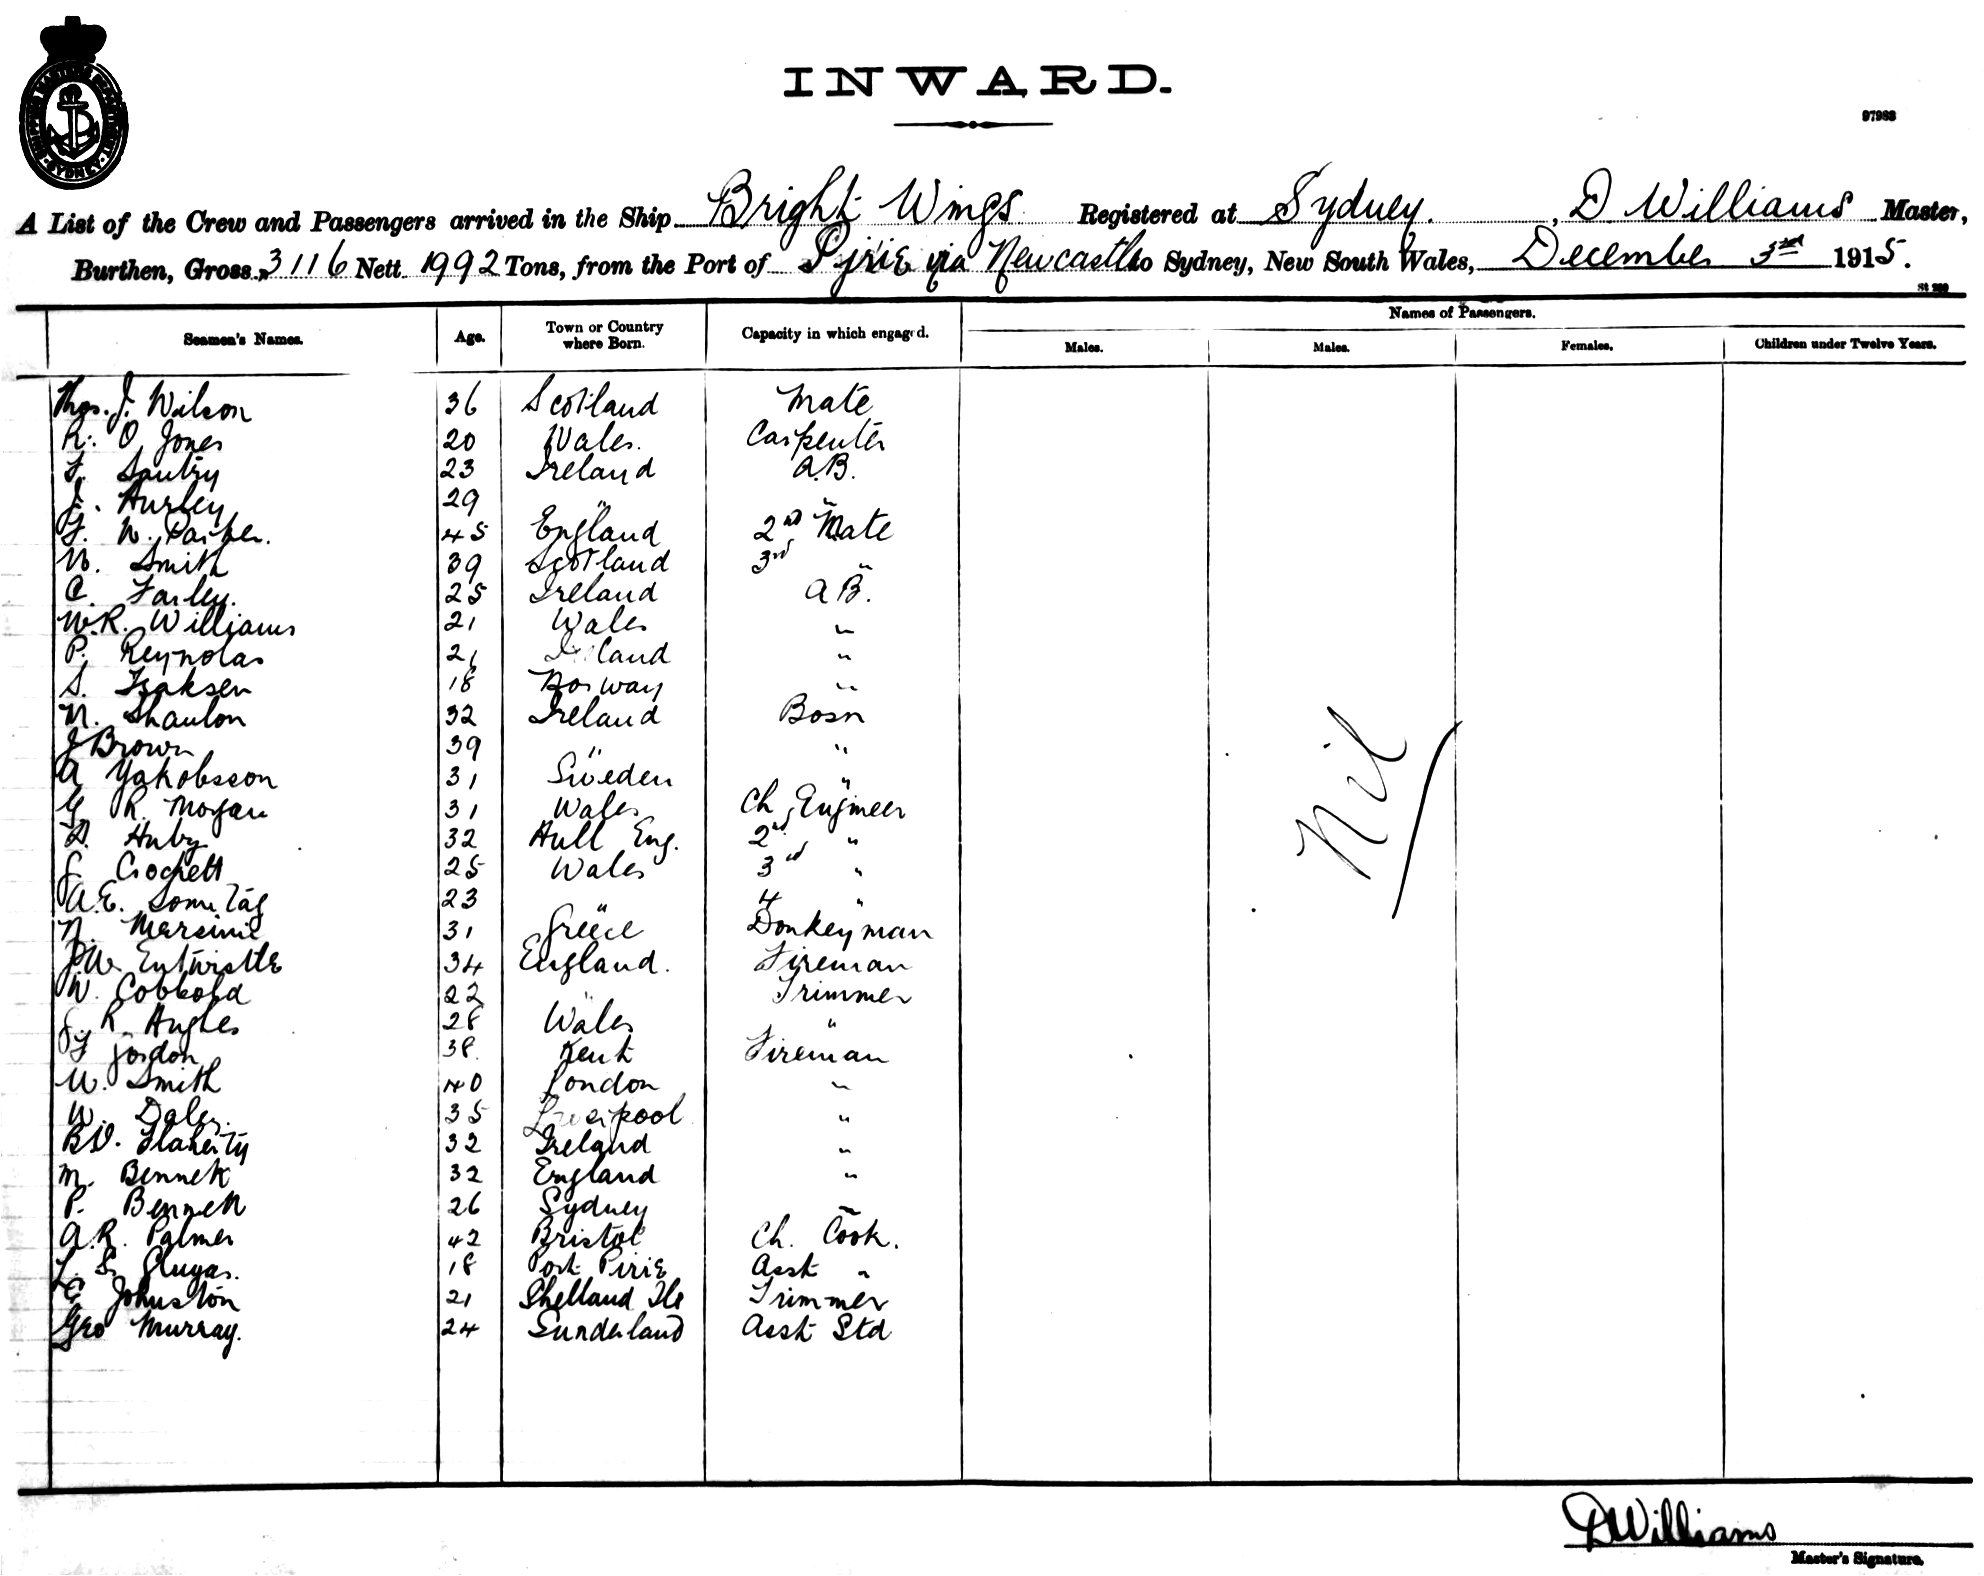 SHIPPING MASTER'S DEPARTMENT SYDNEY
INWARD.
97983
A List of the Crew and Passengers arrived in the Ship Bright Wings Registered at Sydney, D Williams Master,
Burthen, Gross 3116 Nett 1992 Tons, from the Port of Pirie via Newcastle to Sydney, New South Wales, December 3rd 1915.
Names of Passengers.
Seamen's Names. Age. Town or Country where Born. Capacity in which engaged. Males. Males. Females. Children under Twelve Years.
Thos. J. Wilson 36 Scotland Mate
R. O. Jones 20 Wales. Carpenter
F. Santry 23 Ireland A.B.
J. Hurley 29 " "
F. W. Parker. 45 England 2nd Mate
W. Smith 39 Scotland 3rd "
C. Farley. 25 Ireland A B.
W.R. Williams 21 Wales "
P. Reynolds 21 Ireland "
S. Isaksen 18 Norway "
N. Shanlon 32 Ireland Bosn
J Brown 39 " "
A Yakobsson 31 Sweden "
G R. Morgan 31 Wales Ch Engineer
D. Huby 32 Hull Eng. 2nd "
J. Crockett 25 Wales 3rd "
A.E. 23 " 4 "
N. 31 Greece Donkeyman
J.W. Entwistle 34 England. Fireman
W. Cobbold 22 " Trimmer
J. R. Hughes 28 Wales "
F Jordon 38. Kent Fireman
W. Smith 40 London "
W. Daley. 35 Liverpool "
Flaherty 32 Ireland "
M. Bennett 32 England "
P. Bennett 26 Sydney "
A.R. Palmer 42 Bristol Ch. Cook.
L. S. Slugas. 18 Port Pirie Asst "
E Johnston 21 Shetland Ils Trimmer
Geo Murray. 24 Sunderland Asst Std
Nil
D Williams
Master's Signature.